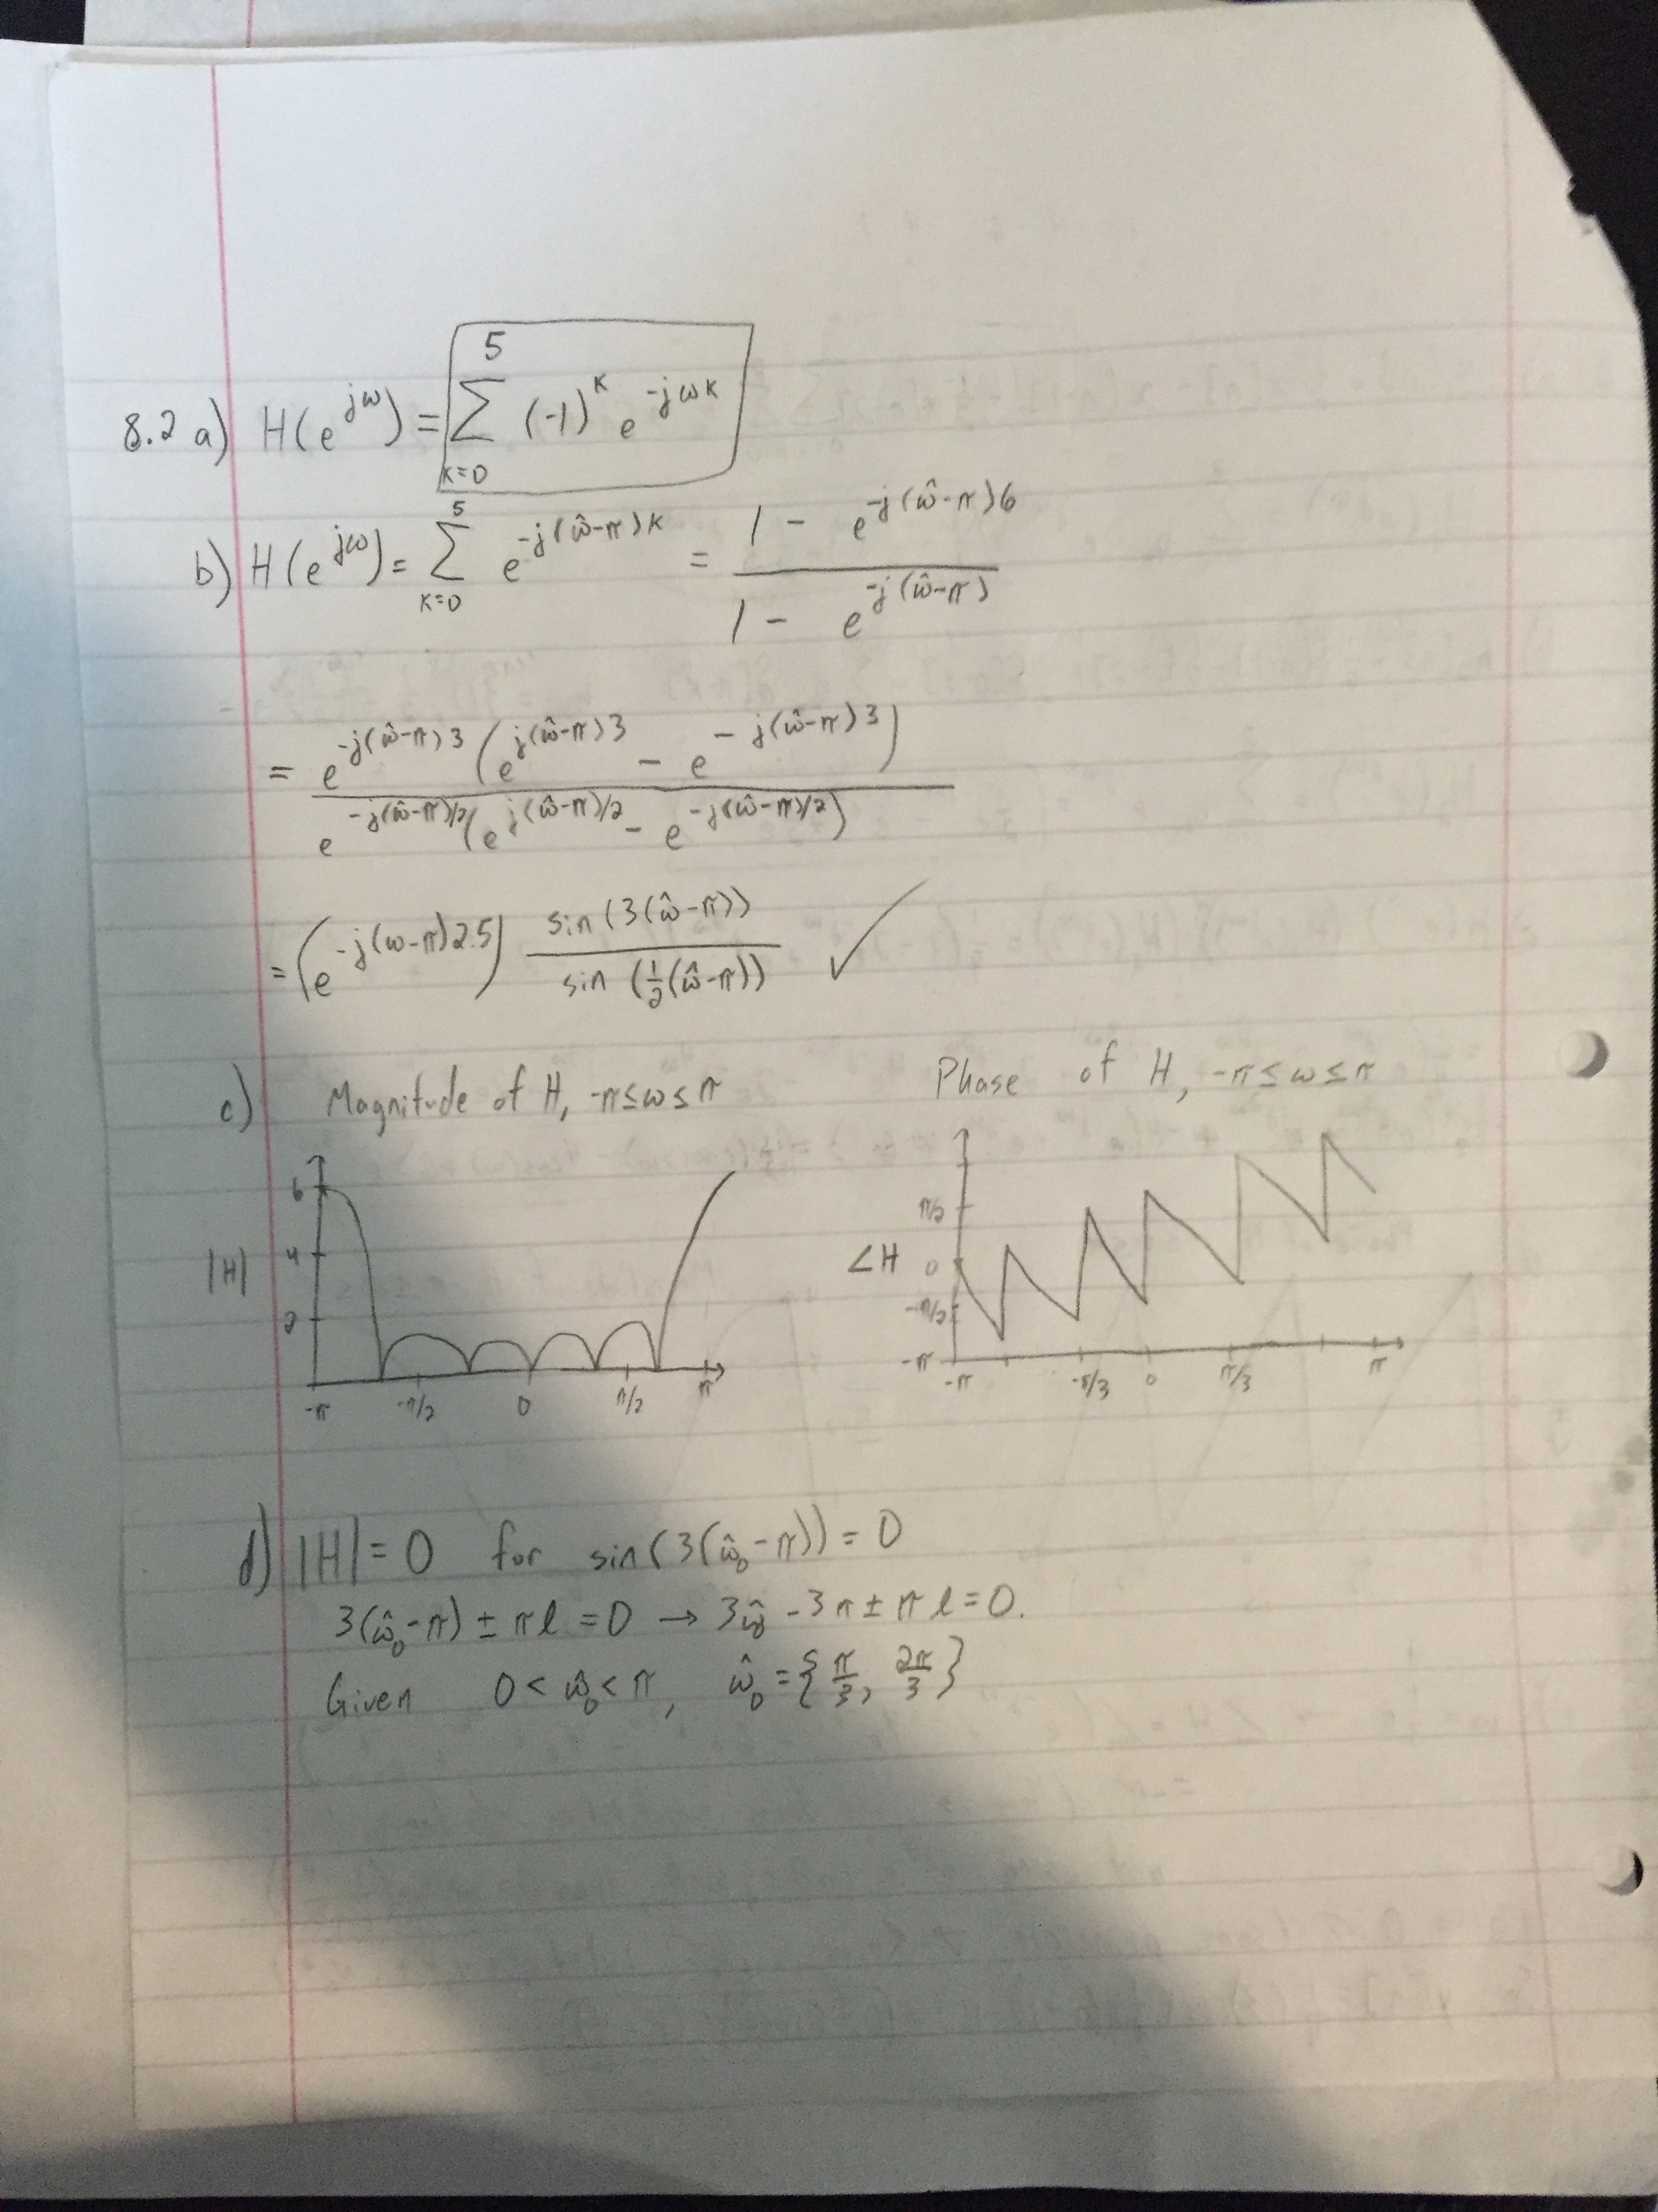 8.2 a) H(e^{jω}) = \sum_{k=0}^{5} (-1)^k e^{-jωk}
b) H(e^{jω}) = \sum_{k=0}^{5} e^{-j(ω̂-π)k} = \frac{1 - e^{-j(ω̂-π)6}}{1 - e^{-j(ω̂-π)}}
= \frac{e^{-j(ω̂-π)3} (e^{j(ω̂-π)3} - e^{-j(ω̂-π)3})}{e^{-j(ω̂-π)/2} (e^{j(ω̂-π)/2} - e^{-j(ω̂-π)/2})}
= (e^{-j(ω-π)2.5}) \frac{sin(3(ω̂-π))}{sin(\frac{1}{2}(ω̂-π))} ✓
c) Magnitude of H, -π≤ω≤π
6
4
|H|
2
-π -π/2 0 π/2 π
Phase of H, -π≤ω≤π
π/2
∠H 0
-π/2
-π
-π -π/3 0 π/3 π
d) |H| = 0 for sin(3(ω̂₀-π)) = 0
3(ω̂₀-π) ± πl = 0 → 3ω̂₀ - 3π ± πl = 0.
Given 0 < ω̂₀ < π, ω̂₀ = {\frac{π}{3}, \frac{2π}{3}}